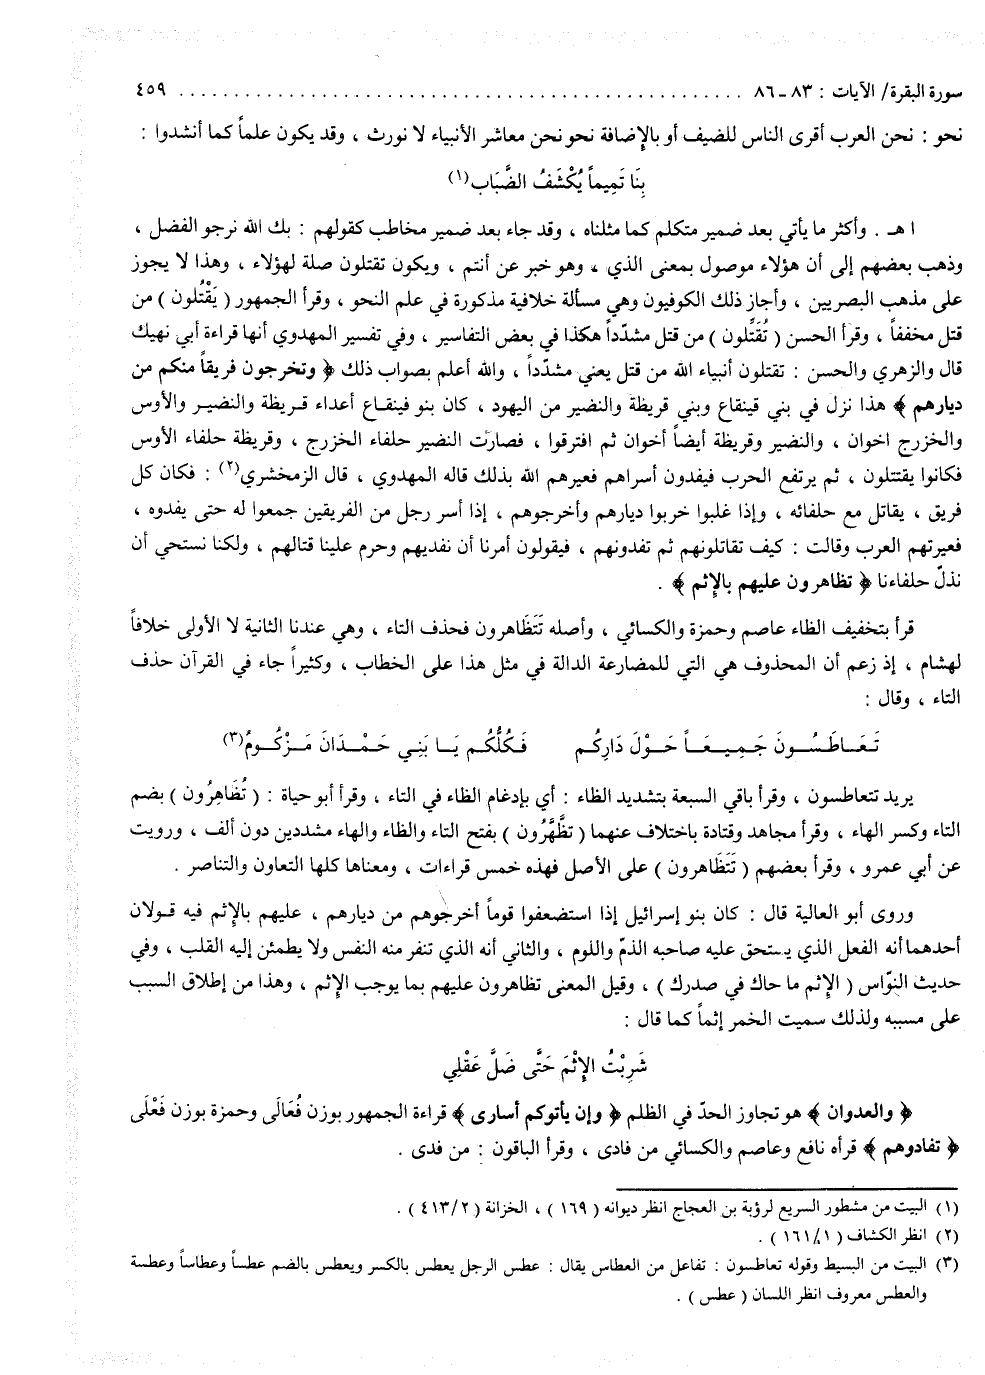 سورة البقرة/ الآيات : ٨٣ ـ ٨٦ ........................................................ ٤٥٩
نحو : نحن العرب أقرى الناس للضيف أو بالإضافة نحو نحن معاشر الأنبياء لا نورث ، وقد يكون علماً كما أنشدوا :
بِنَا تَمِيماً يُكْشَفُ الضَّبَاب(١)
ا هـ . وأكثر ما يأتي بعد ضمير متكلم كما مثلناه ، وقد جاء بعد ضمير مخاطب كقولهم : بك الله نرجو الفضل ،
وذهب بعضهم إلى أن هؤلاء موصول بمعنى الذي ، وهو خبر عن أنتم ، ويكون تقتلون صلة لهؤلاء ، وهذا لا يجوز
على مذهب البصريين ، وأجاز ذلك الكوفيون وهي مسألة خلافية مذكورة في علم النحو ، وقرأ الجمهور ( يَقْتُلون ) من
قتل مخففاً ، وقرأ الحسن ( تُقَتِّلون ) من قتل مشدّداً هكذا في بعض التفاسير ، وفي تفسير المهدوي أنها قراءة أبي نهيك
قال والزهري والحسن : تقتلون أنبياء الله من قتل يعني مشدّداً ، والله أعلم بصواب ذلك ﴿ وتخرجون فريقاً منكم من
ديارهم ﴾ هذا نزل في بني قينقاع وبني قريظة والنضير من اليهود ، كان بنو قينقـاع أعداء قـريظة والنضيـر والأوس
والخزرج اخوان ، والنضير وقريظة أيضاً أخوان ثم افترقوا ، فصارت النضير حلفاء الخزرج ، وقريظة حلفاء الأوس
فكانوا يقتتلون ، ثم يرتفع الحرب فيفدون أسراهم فعيرهم الله بذلك قاله المهدوي ، قال الزمخشري(٢) : فكان كل
فريق ، يقاتل مع حلفائه ، وإذا غلبوا خربوا ديارهم وأخرجوهم ، إذا أسر رجل من الفريقين جمعوا له حتى يفدوه ،
فعيرتهم العرب وقالت : كيف تقاتلونهم ثم تفدونهم ، فيقولون أمرنا أن نفديهم وحرم علينا قتالهم ، ولكنا نستحي أن
نذلّ حلفاءنا ﴿ تظاهرون عليهم بالإثم ﴾ .
قرأ بتخفيف الظاء عاصم وحمزة والكسائي ، وأصله تَتَظَاهرون فحذف التاء ، وهي عندنا الثانية لا الأولى خلافاً
لهشام ، إذ زعم أن المحذوف هي التي للمضارعة الدالة في مثل هذا على الخطاب ، وكثيراً جاء في القرآن حذف
التاء ، وقال :
تَـعَـاطَـسُـونَ جَـمِـيـعَـاً حَـوْلَ دَارِكُم     فَـكُلُّكُم يَـا بَنِـي حَـمْـدَانَ مَـزْكُـومُ(٣)
يريد تتعاطسون ، وقرأ باقي السبعة بتشديد الظاء : أي بإدغام الظاء في التاء ، وقرأ أبو حياة : ( تُظَاهِرُون ) بضم
التاء وكسر الهاء ، وقرأ مجاهد وقتادة باختلاف عنهما ( تظَّهَّرُون ) بفتح التاء والظاء والهاء مشددين دون ألف ، ورويت
عن أبي عمرو ، وقرأ بعضهم ( تَتَظَاهرون ) على الأصل فهذه خمس قراءات ، ومعناها كلها التعاون والتناصر .
وروى أبو العالية قال : كان بنو إسرائيل إذا استضعفوا قوماً أخرجوهم من ديارهم ، عليهم بالإثم فيه قـولان
أحدهما أنه الفعل الذي يستحق عليه صاحبه الذمّ واللوم ، والثاني أنه الذي تنفر منه النفس ولا يطمئن إليه القلب ، وفي
حديث النوّاس ( الإثم ما حاك في صدرك ) ، وقيل المعنى تظاهرون عليهم بما يوجب الإثم ، وهذا من إطلاق السبب
على مسببه ولذلك سميت الخمر إثماً كما قال :
شَرِبْتُ الإثْمَ حَتَّى ضَلَّ عَقْلِي
﴿ والعدوان ﴾ هو تجاوز الحدّ في الظلم ﴿ وإن يأتوكم أسارى ﴾ قراءة الجمهور بوزن فُعَالَى وحمزة بوزن فَعْلَى
﴿ تفادوهم ﴾ قرأه نافع وعاصم والكسائي من فادى ، وقرأ الباقون : من فدى .
(١) البيت من مشطور السريع لرؤبة بن العجاج انظر ديوانه ( ١٦٩ ) ، الخزانة ( ٤١٣/٢ ) .
(٢) انظر الكشاف ( ١٦١/١ ) .
(٣) البيت من البسيط وقوله تعاطسون : تفاعل من العطاس يقال : عطس الرجل يعطس بالكسر ويعطس بالضم عطساً وعطاساً وعطسة
والعطس معروف انظر اللسان ( عطس ) .